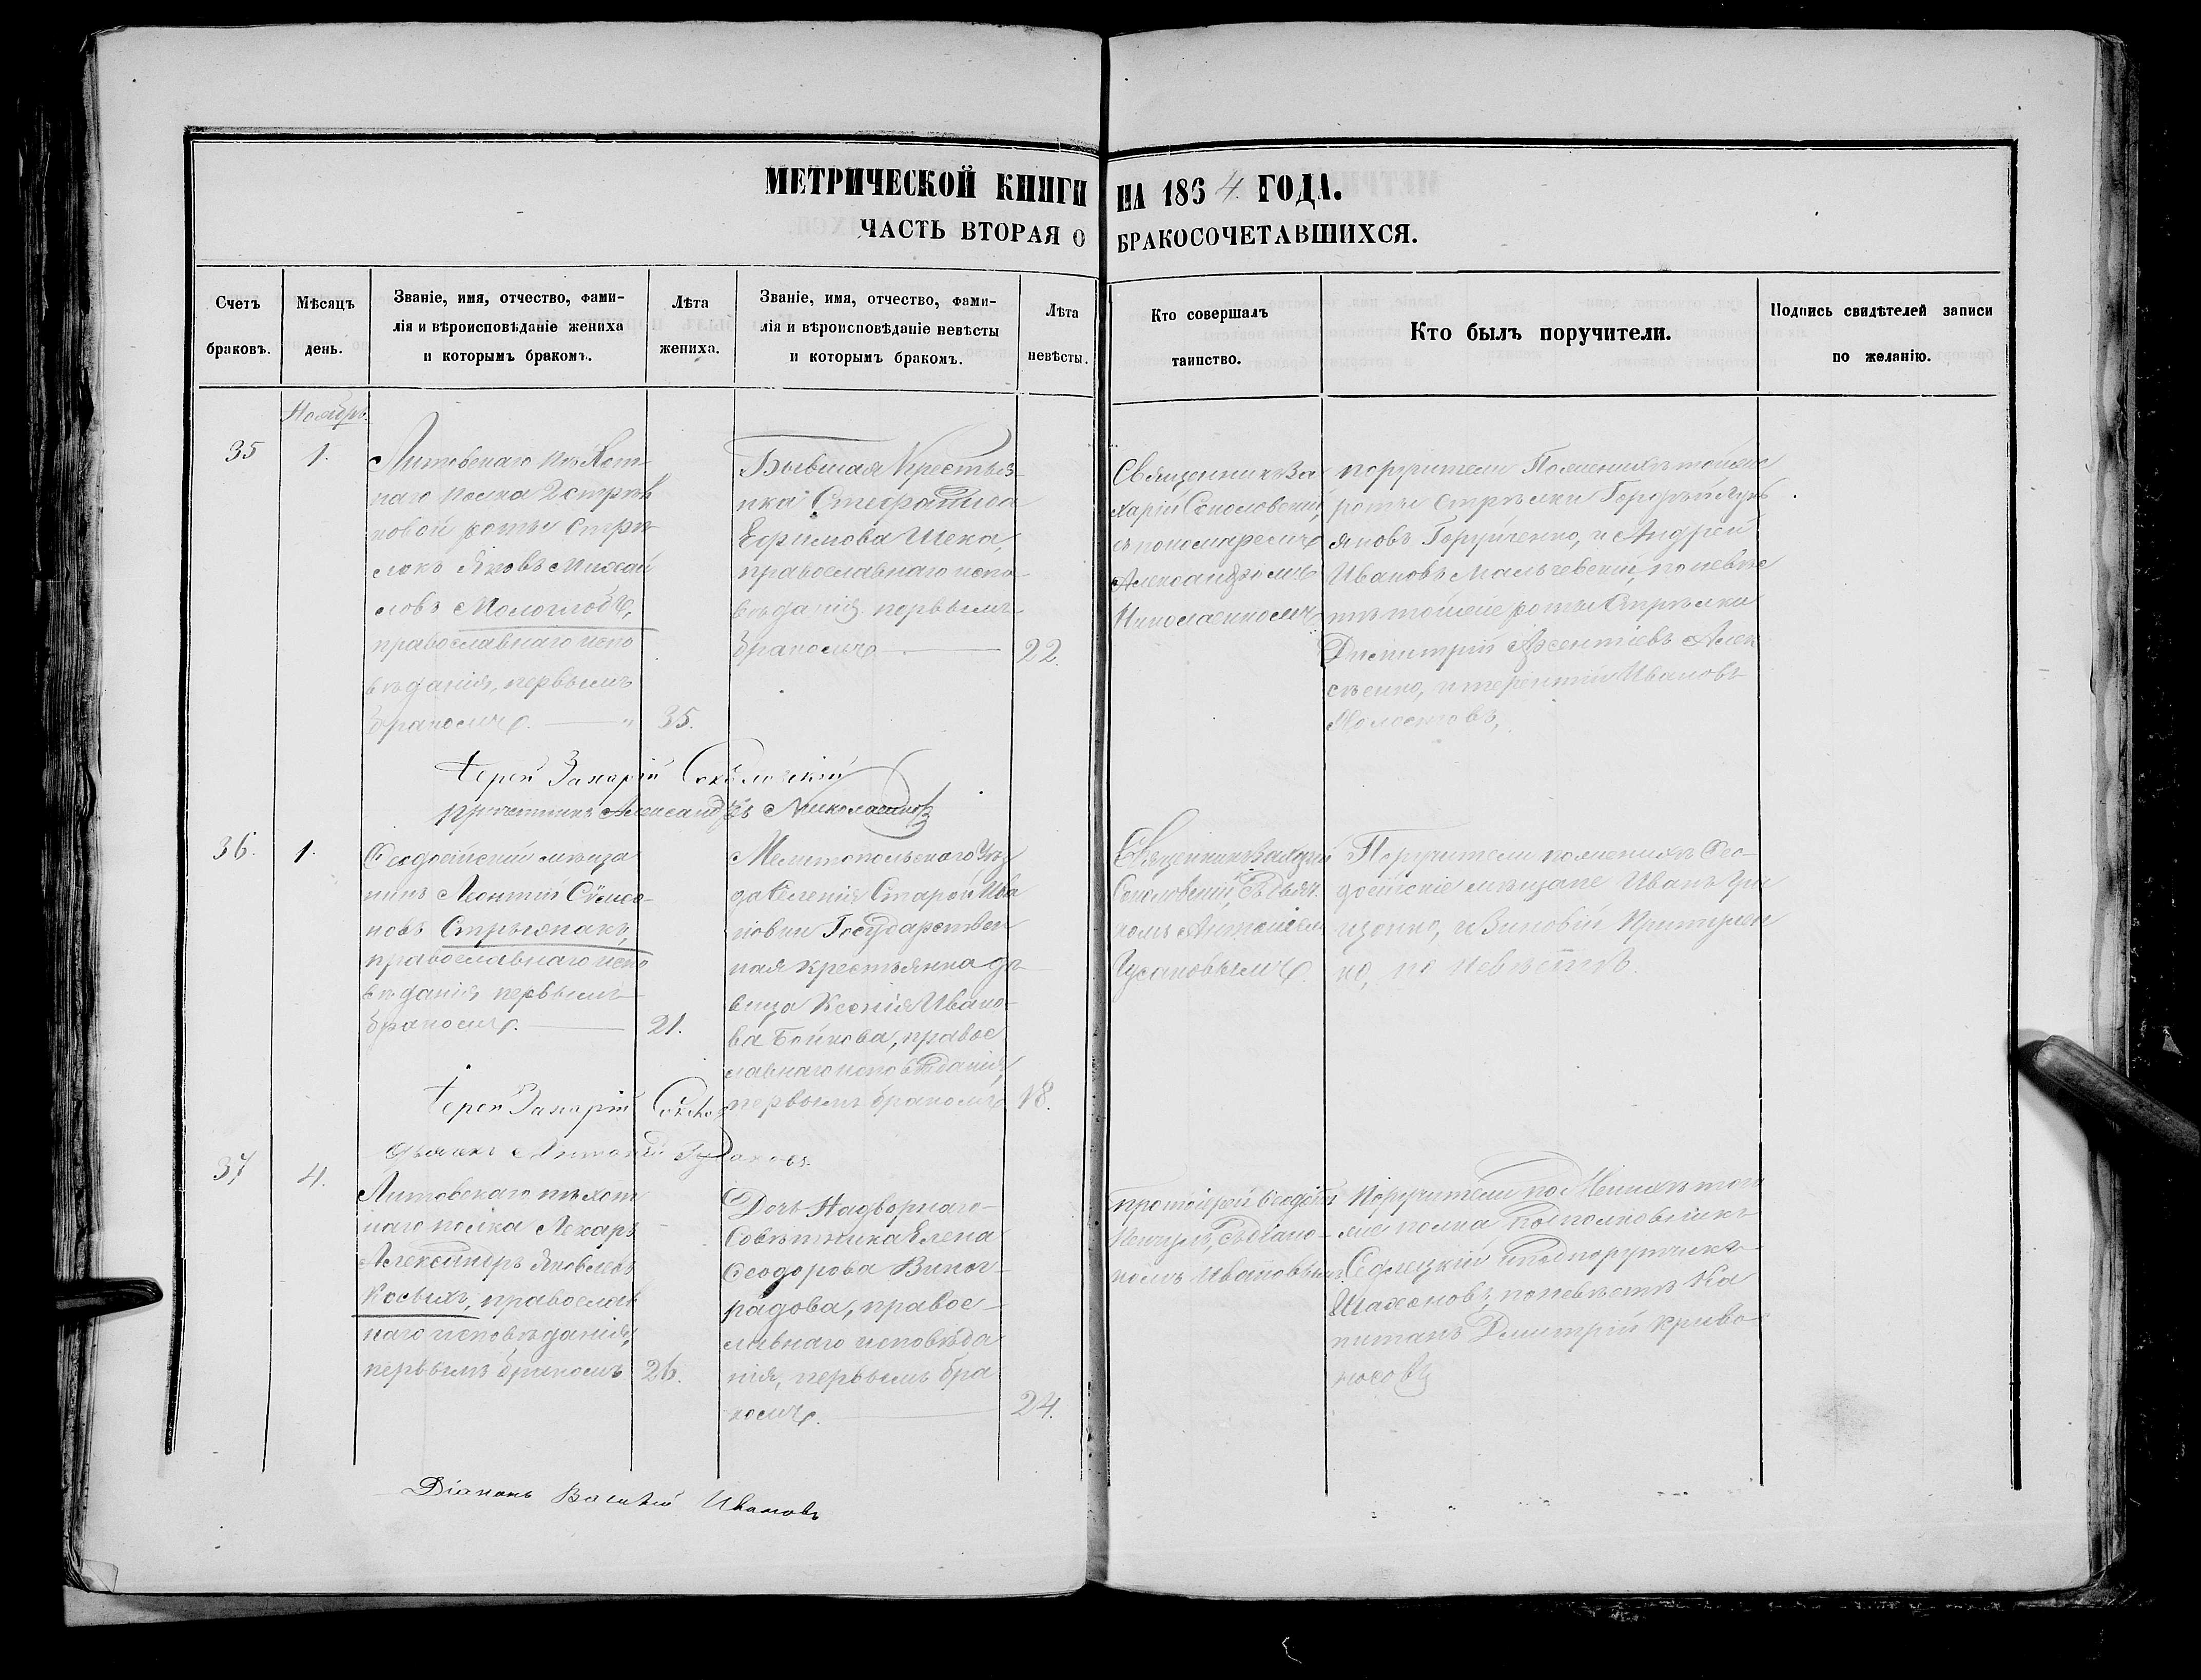 МЕТРИЧЕСКОЙ КНИГИ НА 1864 ГОДА.
ЧАСТЬ ВТОРАЯ О БРАКОСОЧЕТАВШИХСЯ.
Счетъ
браковъ.
Мѣсяцъ
день.
Званіе, имя, отчество, фами-
лія и вѣроисповѣданіе жениха
и которымъ бракомъ.
Лѣта
жениха.
Званіе, имя, отчество, фами-
лія и вѣроисповѣданіе невѣсты
и которымъ бракомъ.
Лѣта
невѣсты.
Кто совершалъ
таинство.
Кто былъ поручители.
Подпись свидѣтелей записи
по желанію.
Ноябрь.
35
1.
Литовскаго пѣхот-
наго полка 2 стрѣл
ковой роты Стрѣ-
локъ Яковъ Михай
ловъ
православнаго испо
вѣданія, первымъ
бракомъ.
35.
Бывшая Крестья-
нка Стефанида
Ефимова Шека,
православнаго испо-
вѣданія первымъ
бракомъ
22.
Священникъ За
харій Соколовскій,
съ пономаремъ
Александромъ
поручители По женихѣ тойже
роты Стрѣлки
и Андрей
Ивановъ Мальчевскій, по невѣс
тѣ тойже роты Стрѣлки
Димитрій Арсентіевъ Алек
сѣенко, и терентій Ивановъ
Іерей Захарій Соколовскій
причетникъ Александръ
36.
1.
Ѳеодосійскій мѣща
нинъ Леонтій Симео-
новъ
православнаго испо
вѣданія первымъ
бракомъ.
21.
Мелитопольскаго Уѣз
да Селенія Старой Ива
новки Государствен
ная крестьянка дѣ-
вица Ксенія Ивано-
ва Бойкова, правос
лавнаго исповѣданія,
первымъ бракомъ
18.
Священникъ Захарій
Соколовскій, съ дьяч-
комъ Антоніемъ
Гусаковымъ.
Поручители по женихѣ Ѳео-
досійскіе мѣщане Иванъ Гри
щенко, и Зиновій
ко, по невѣстѣ
Іерей Захарій
дьячекъ Антоній Гусаковъ.
37
4.
Литовскаго пѣхот
наго полка Лекарь
Александръ Яковлевъ
Косыхъ, православ
наго исповѣданія,
первымъ бракомъ
26.
Дочь Надворнаго
Совѣтника Елена
Ѳеодорова Виног-
радова, правос-
лавнаго исповѣда
нія, первымъ бра
комъ.
24.
протоіерей
съ діако-
номъ Ивановымъ
Поручители по Женихѣ того
же полка Подполковникъ
Седлецкій и подпоручикъ
Шахановъ, по невѣстѣ Ка
питанъ Дмитрій Криво-
носовъ
Діаконъ Василій Ивановъ